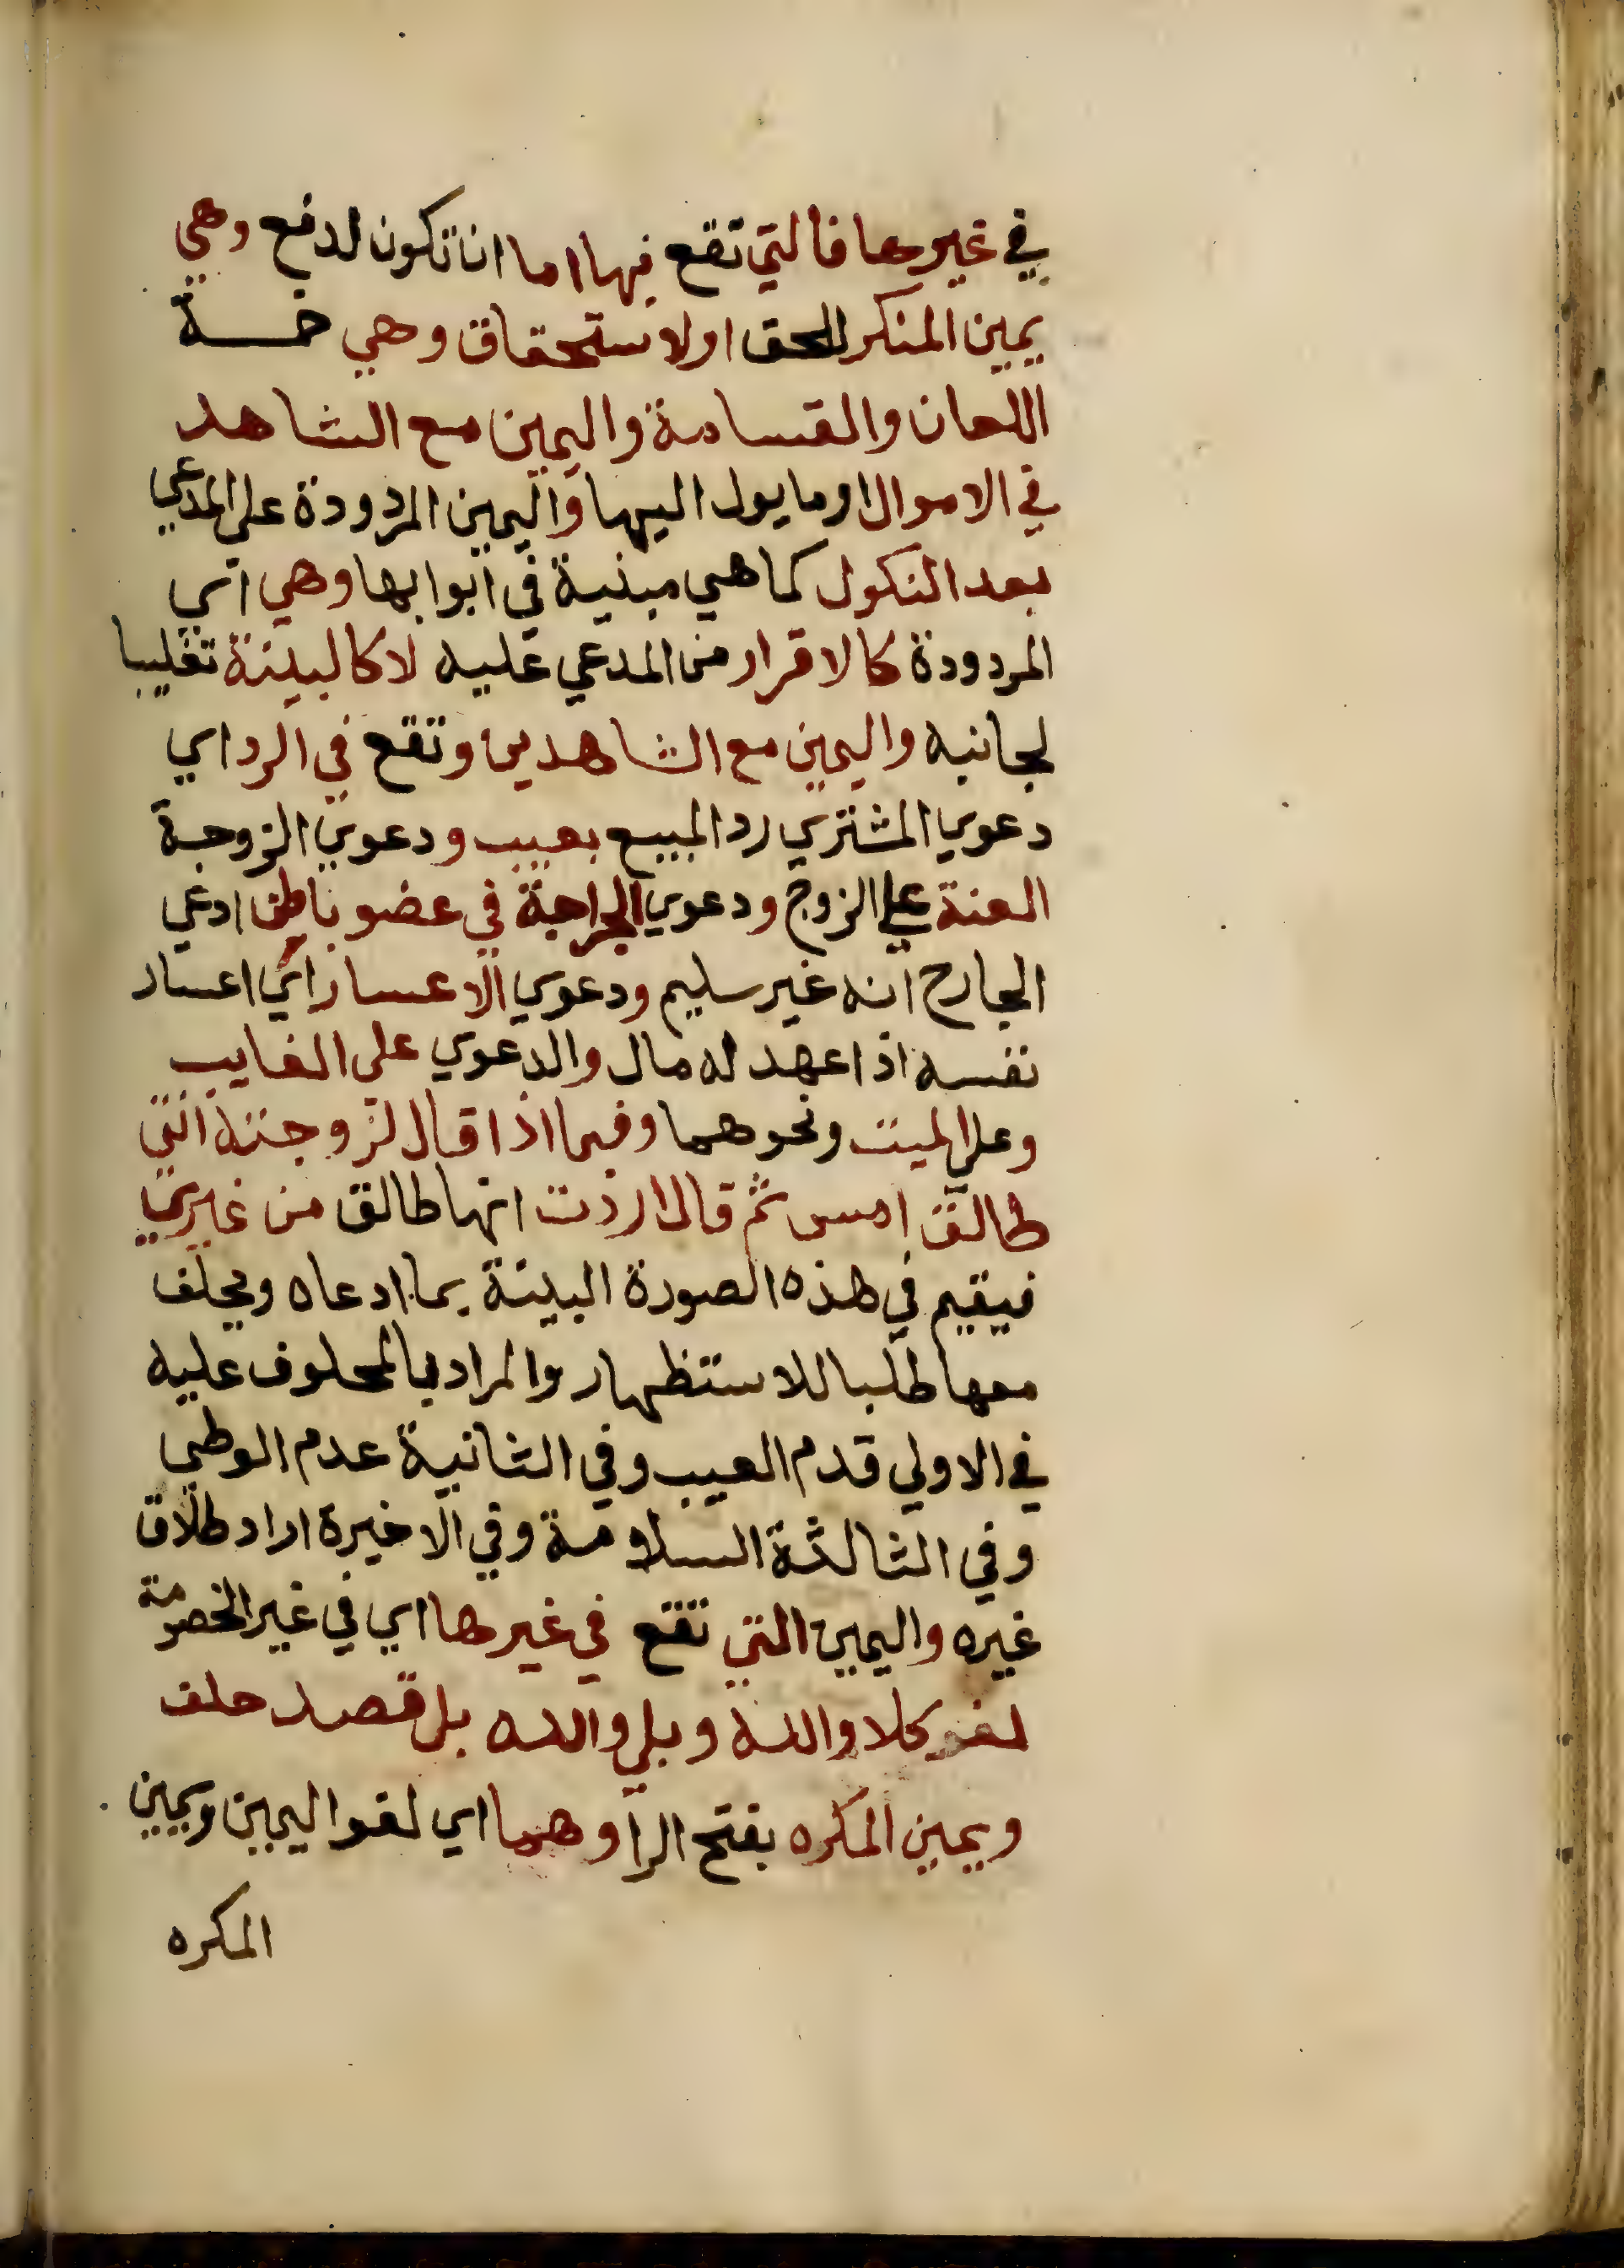 في غيرها فالتي تقع فيها اما ان تكون لدفع وهي
يمين المنكر للحق او لاستحقاق وهي خمسة
اللعان والقسامة واليمين مع الشاهد
في الاموال او ما يول اليها واليمين المردودة علي المدعي
بعد النكول كما هي مبنية في ابوابها وهي اي
المردودة كالاقرار من المدعي عليه لا كالبينة تغليبا
لجانبه واليمين مع الشاهدين وتقع في الرد اي
دعوي المشتري رد المبيع بعيب ودعوي الزوجة
العنة علي الزوج ودعوي الجراحة في عضو باطن ادعي
الجارح انه غير سليم ودعوي الاعسار اي اعسار
نفسه اذا عهد له مال والدعوي علي الغايب
وعلي الميت ونحوهما وفيما اذا قال لزوجته انتي
طالق امس ثم قال اردت انها طالق من غيري
فيقيم في هذه الصورة البينة بما ادعاه ويحلف
معها طلبا للاستظهار والمراد بالمحلوف عليه
في الاولي قدم العيب وفي الثانية عدم الوطي
وفي الثالثة السلامة وفي الاخيرة اراد طلاق
غيره واليمين التي تقع في غيرها اي في غير الخصومة
لغو كلا والله وبلي والله بلا قصد حلف
ويمين المكره بفتح الرا وهما اي لغو اليمين ويمين
المكره